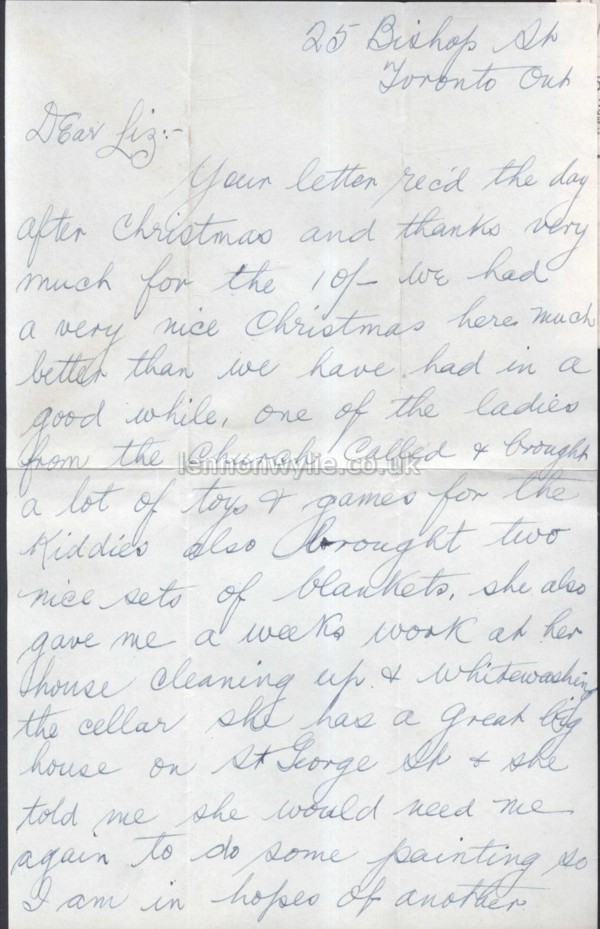 25 Bishop St
Toronto Ont
Dear Liz:-
Your letter rec'd the day
after Christmas and thanks very
much for the 10/- we had
a very nice Christmas here much
better than we have had in a
good while, one of the ladies
from the Church Called & brought
lennonwylie.co.uk
a lot of toys & games for the
Kiddies also brought two
nice sets of blankets, she also
gave me a weeks work at her
house cleaning up & whitewashing
the cellar she has a great big
house on St George St & she
told me she would need me
again to do some painting so
I am in hopes of another